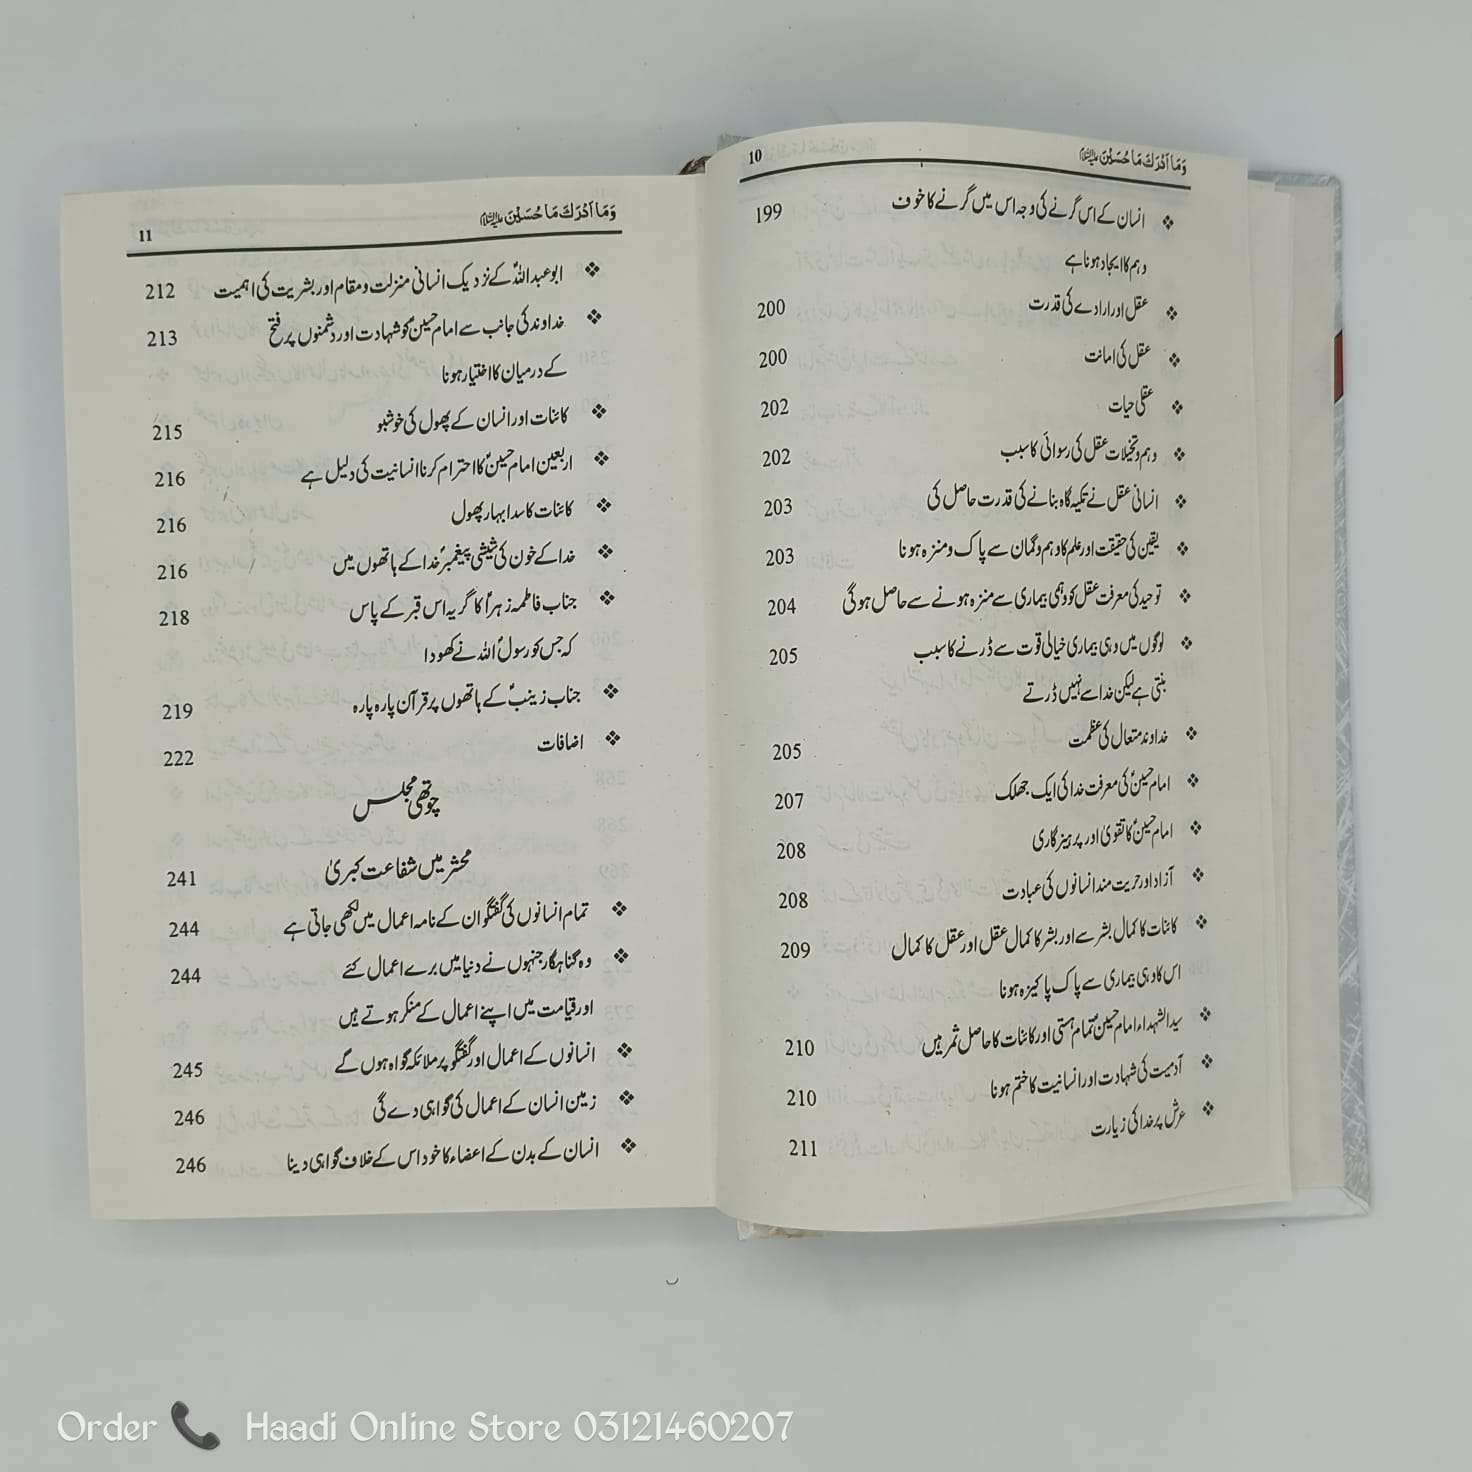 وَمَا اَدْرَكَ مَا حُسَیْن علیہ السلام
10
انسان کے اس گرنے کی وجہ اس میں گرنے کا خوف 199
وہم کا ایجاد ہونا ہے
عقل اور ارادے کی قدرت 200
عقل کی امانت 200
عقلی حیات 202
وہم و تخیلات عقل کی رسوائی کا سبب 202
انسانی عقل نے تکیہ گاہ بنانے کی قدرت حاصل کی 203
یقین کی حقیقت اور علم کا وہم و گمان سے پاک و منزہ ہونا 203
توحید کی معرفت عقل کو وہمی بیماری سے منزہ ہونے سے حاصل ہوگی 204
لوگوں میں وہمی بیماری خیالی قوت سے ڈرنے کا سبب 205
بنتی ہے لیکن خدا سے نہیں ڈرتے
خداوند متعال کی عظمت 205
امام حسینؑ کی معرفت خدا کی ایک جھلک 207
امام حسینؑ کا تقویٰ اور پرہیزگاری 208
آزاد اور حریت مند انسانوں کی عبادت 208
کائنات کا کمال بشر سے اور بشر کا کمال عقل اور عقل کا کمال 209
اس کا وہمی بیماری سے پاک پاکیزہ ہونا
سید الشہداء امام حسینؑ تمام ہستی اور کائنات کا حاصل ثمر ہیں 210
آدمیت کی شہادت اور انسانیت کا ختم ہونا 210
عرش پر خدا کی زیارت 211
وَمَا اَدْرَكَ مَا حُسَیْن علیہ السلام
11
ابو عبداللہؑ کے نزدیک انسانی منزلت و مقام اور بشریت کی اہمیت 212
خداوند کی جانب سے امام حسینؑ کو شہادت اور دشمنوں پر فتح 213
کے درمیان کا اختیار ہونا
کائنات اور انسان کے پھول کی خوشبو 215
اربعین امام حسینؑ کا احترام کرنا انسانیت کی دلیل ہے 216
کائنات کا سدا بہار پھول 216
خدا کے خون کی شیشی پیغمبرؐ خدا کے ہاتھوں میں 216
جناب فاطمہ زہراؑ کا گریہ اس قبر کے پاس 218
کہ جس کو رسولؐ اللہ نے کھودا
جناب زینبؑ کے ہاتھوں پر قرآن پارہ پارہ 219
اضافات 222
چوتھی مجلس
محشر میں شفاعت کبریٰ 241
تمام انسانوں کی گفتگو ان کے نامہ اعمال میں لکھی جاتی ہے 244
وہ گناہگار جنہوں نے دنیا میں برے اعمال کئے 244
اور قیامت میں اپنے اعمال کے منکر ہوتے ہیں
انسانوں کے اعمال اور گفتگو پر ملائکہ گواہ ہوں گے 245
زمین انسان کے اعمال کی گواہی دے گی 246
انسان کے بدن کے اعضاء کا خود اس کے خلاف گواہی دینا 246
Order Haadi Online Store 03121460207